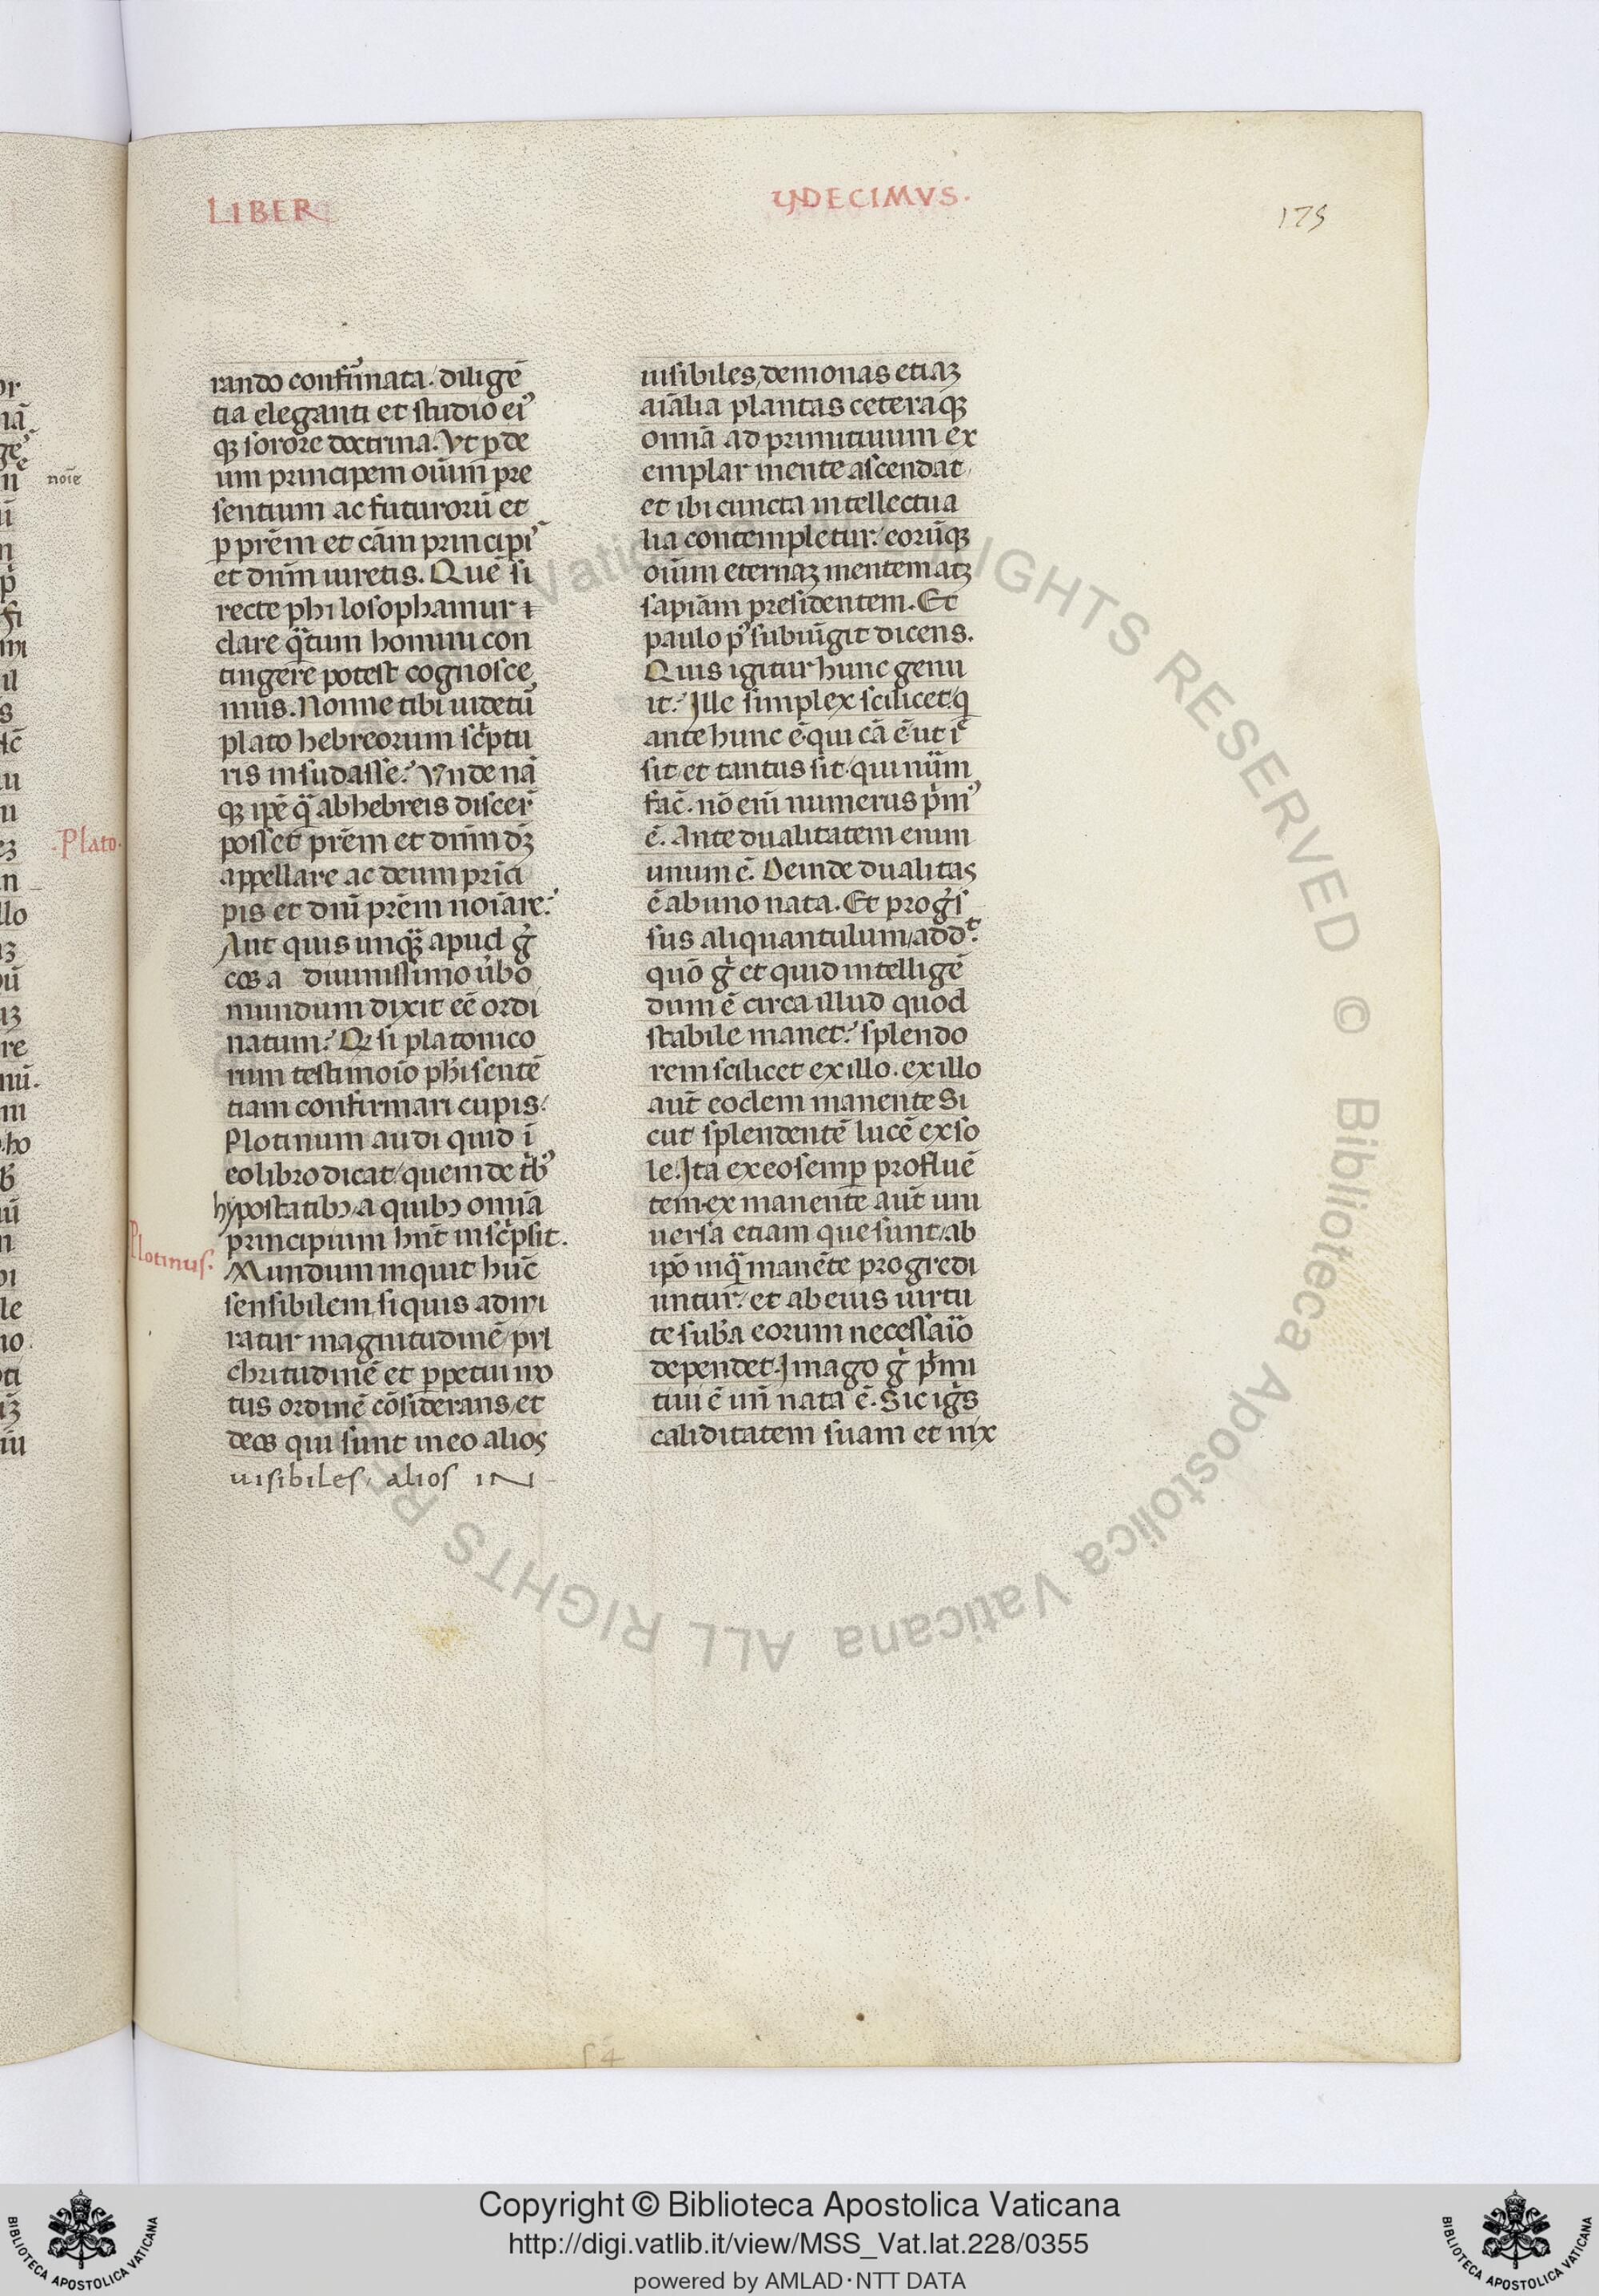 LIBER
VNDECIMVS.
175
rando confirmata. diligē
tia eleganti et studio ei᾿
qꝫ sorore doctrina. Vt p de
um principem oium pre
sentium ac futurorū et
p prēm et cām principi᾿
et dnm iuretis. Quē si
recte philosophamur ⁊
clare qtum homini con
tingere potest cognosce
mus. Nonne tibi uidetū
plato hebreorum scptu
ris insudasse? Vnde nā
qꝫ ipē q̄ ab hebreis discer̄
posset prēm et dnm dꝫ
appellare ac deum princi
pis et dnī prēm noīare?
Aut quis unqꝫ apud g̊
cos a diuinissimo u̓bo
mundum dixit eē ordi
natum? Qꝫ si platonico
rum testimoīo phi sentē
tiam confirmari cupis.
Plotinum audi quid ī
eo libro dicat/ quem de tb᾿
hypostatibꝰ a quibꝰ omnia
principium hnt inscpsit.
Mundum inquit hūc
sensibilem si quis admi
ratur magnitudinē/ pul
chritudinē et ppetui mo
tus ordinē cōsiderans/ et
deos qui sunt in eo alios
uisibiles, alios IN-
uisibiles, demonas etiaꝫ
aialia plantas ceteraqꝫ
omnia ad primitiuum ex
emplar mente ascendat
et ibi cuncta intellectua
lia contempletur. eorūqꝫ
oium eternaꝫ mentem atqꝫ
sapiam presidentem. Et
paulo p᾿ subiūgit dicens.
Quis igitur hunc genu
it? Ille simplex scilicet. q
ante hunc ē. qui cā ē ut iᵉ
sit. et tantus sit. qui nūm
fac̄. nō eni numerus pm᾿
ē. Ante dualitatem enim
unum ē. Deinde dualitas
ē ab uno nata. Et progs̄
sus aliquantulum, addᵗ.
quō g̊ et quid intelligē
dum ē circa illud quod
stabile manet? splendo
rem scilicet ex illo. ex illo
aut̄ eodem manente Si
cut splendentē lucē ex so
le. Ita ex eo semp profluē
tem. ex manente aut̄ uni
uersa etiam que sunt. ab
ipō inq̄ manēte progredi
untur. et ab eius uirtu
te suba eorum necessaiō
dependet. Imago g̊ pmi
tiui ē un̄ nata ē. Sic igs
caliditatem suam et nix
Plato.
noiē
Plotinus.
54
© Biblioteca Apostolica Vaticana ALL RIGHTS RESERVED
Copyright © Biblioteca Apostolica Vaticana
http://digi.vatlib.it/view/MSS_Vat.lat.228/0355
powered by AMLAD·NTT DATA
BIBLIOTECA APOSTOLICA VATICANA
BIBLIOTECA APOSTOLICA VATICANA